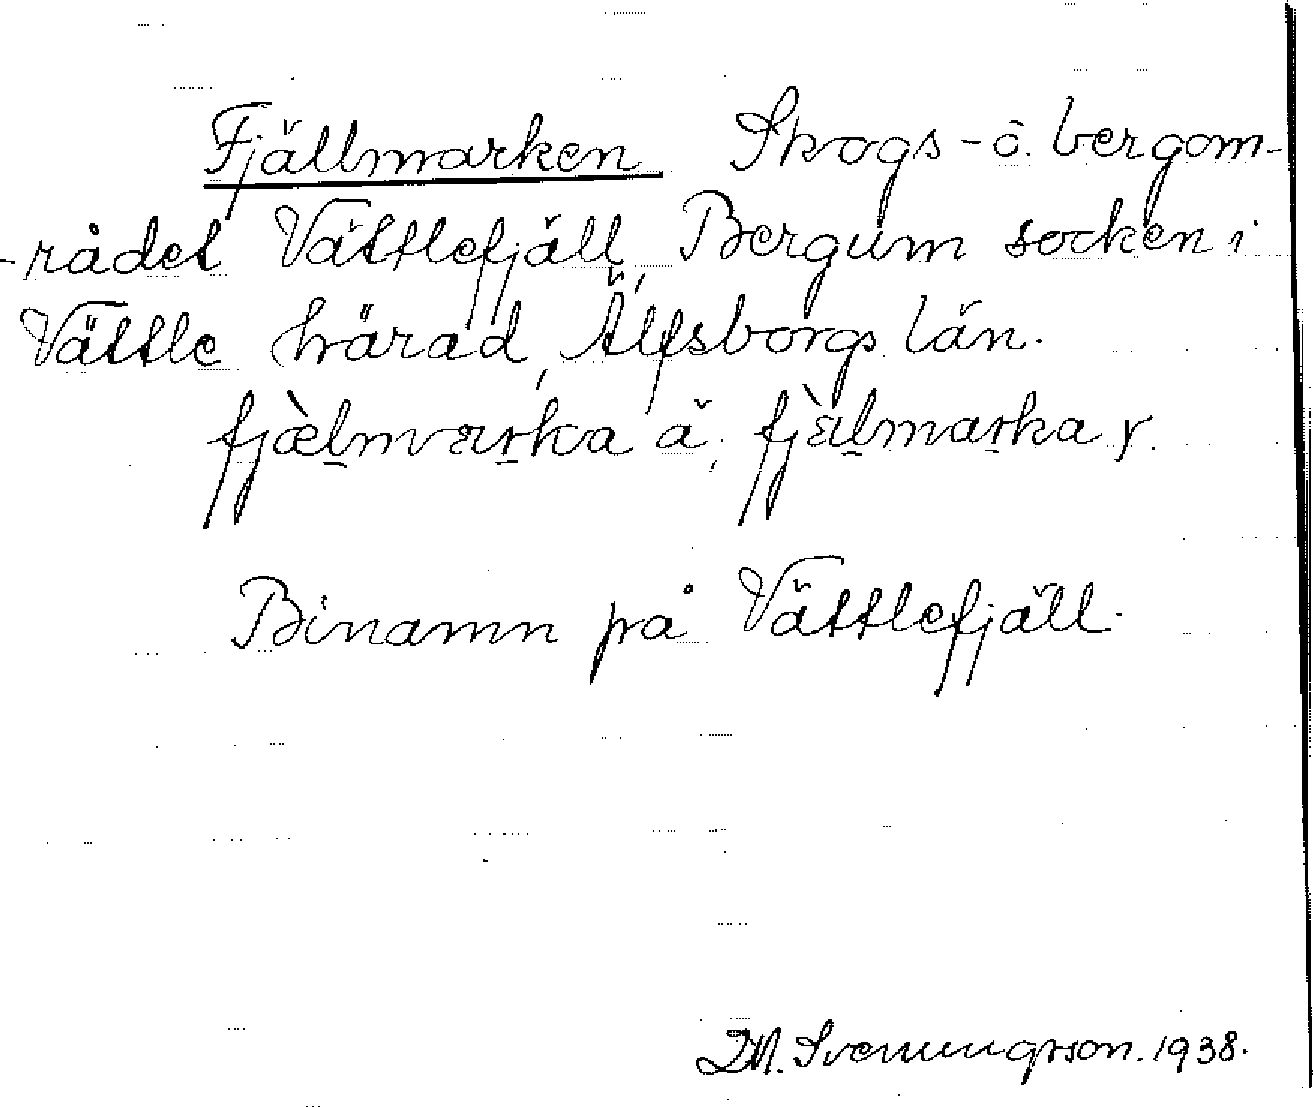 Fjällmarken Skogs- o. bergom-
-rådet Vättlefjäll, Bergum socken i
Vättle härad, Älfsborgs län.
fjæ̀lmarka ä, fjàlmarka y.
Binamn på Vättlefjäll.
Svenungsson. 1938.